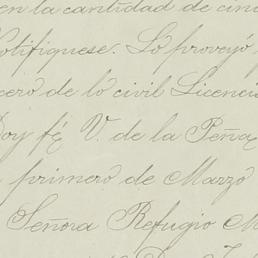 en la cantidad de cinc
Notifiquese. Lo proveyó
cero de lo civil Licenci
Doy fé V. de la Peña
primero de Marzo
Señora Refugio M